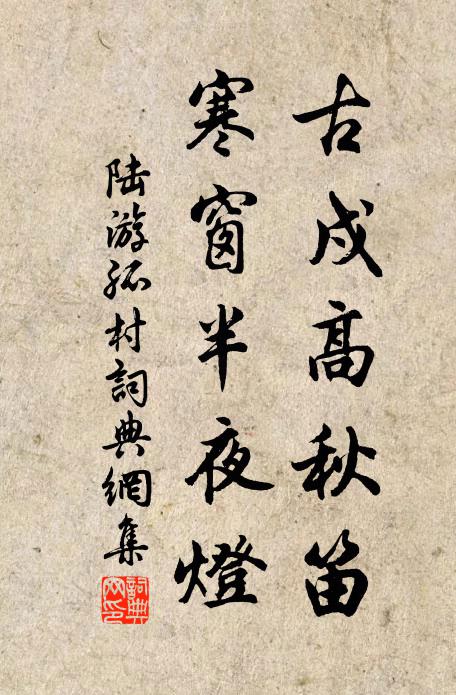 古戍高秋笛
寒窗半夜燈
陸游孤村詞典網集
詞典
网印